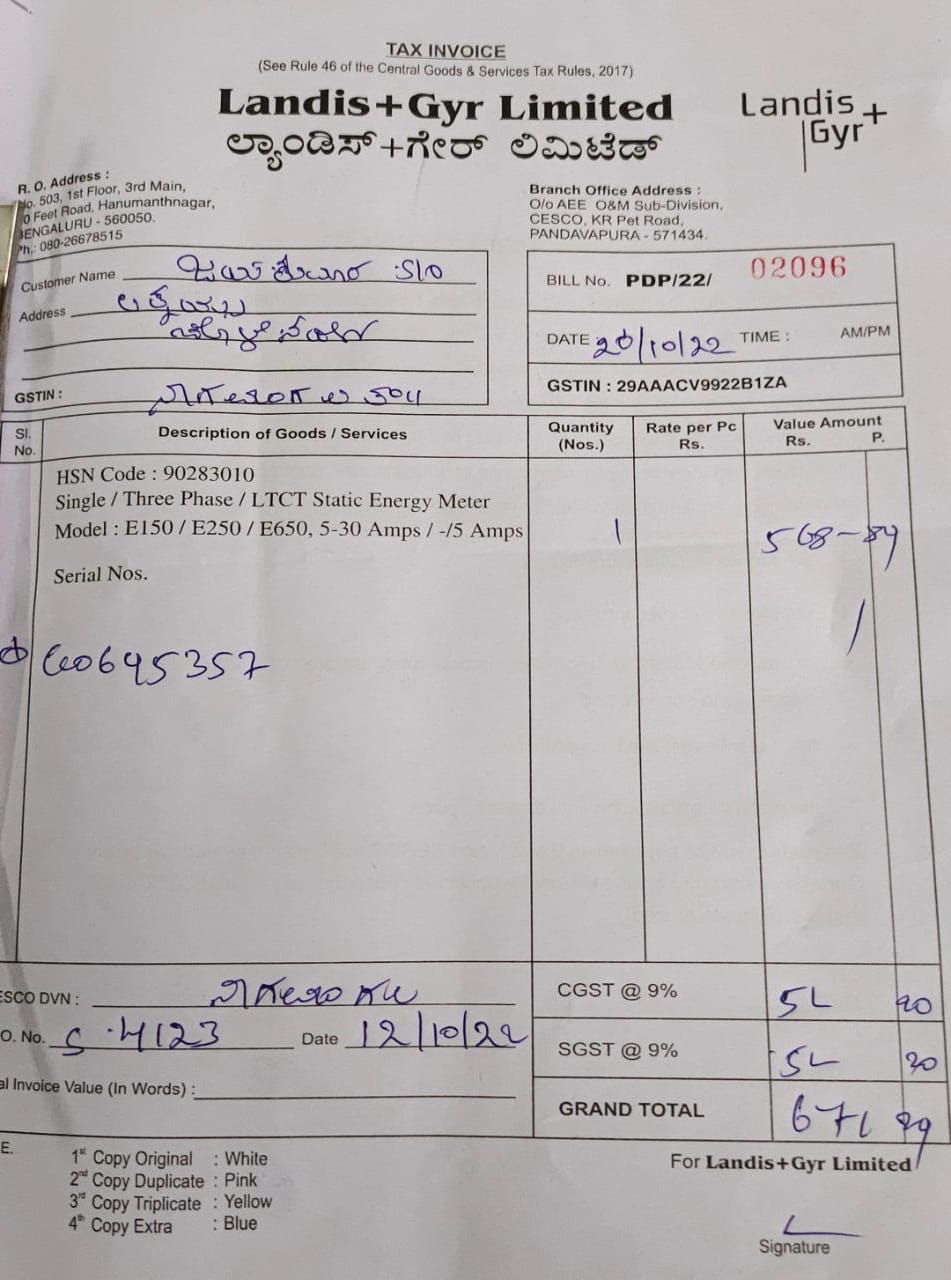 TAX INVOICE
(See Rule 46 of the Central Goods & Services Tax Rules, 2017)
Landis+Gyr Limited
ಲ್ಯಾಂಡಿಸ್+ಗೇರ್ ಲಿಮಿಟೆಡ್
Landis+
Gyr
R. O. Address :
No. 503, 1st Floor, 3rd Main,
0 Feet Road, Hanumanthnagar,
BENGALURU - 560050.
Ph.: 080-26678515
Branch Office Address :
O/o AEE O&M Sub-Division,
CESCO, KR Pet Road,
PANDAVAPURA - 571434.
Customer Name S/O
Address
GSTIN :
BILL No. PDP/22/ 02096
DATE 20/10/22 TIME : AM/PM
GSTIN : 29AAACV9922B1ZA
Sl. No. Description of Goods / Services Quantity (Nos.) Rate per Pc Rs. Value Amount Rs. P.
HSN Code : 90283010
Single / Three Phase / LTCT Static Energy Meter
Model : E150 / E250 / E650, 5-30 Amps / -/5 Amps 1 568-89
Serial Nos.
645357
ESCO DVN :
CGST @ 9% 51 20
O. No. S 4123 Date 12/10/22
SGST @ 9% 51 20
al Invoice Value (In Words) :
GRAND TOTAL 671 29
E.
1st Copy Original : White
2nd Copy Duplicate : Pink
3rd Copy Triplicate : Yellow
4th Copy Extra : Blue
For Landis+Gyr Limited
Signature